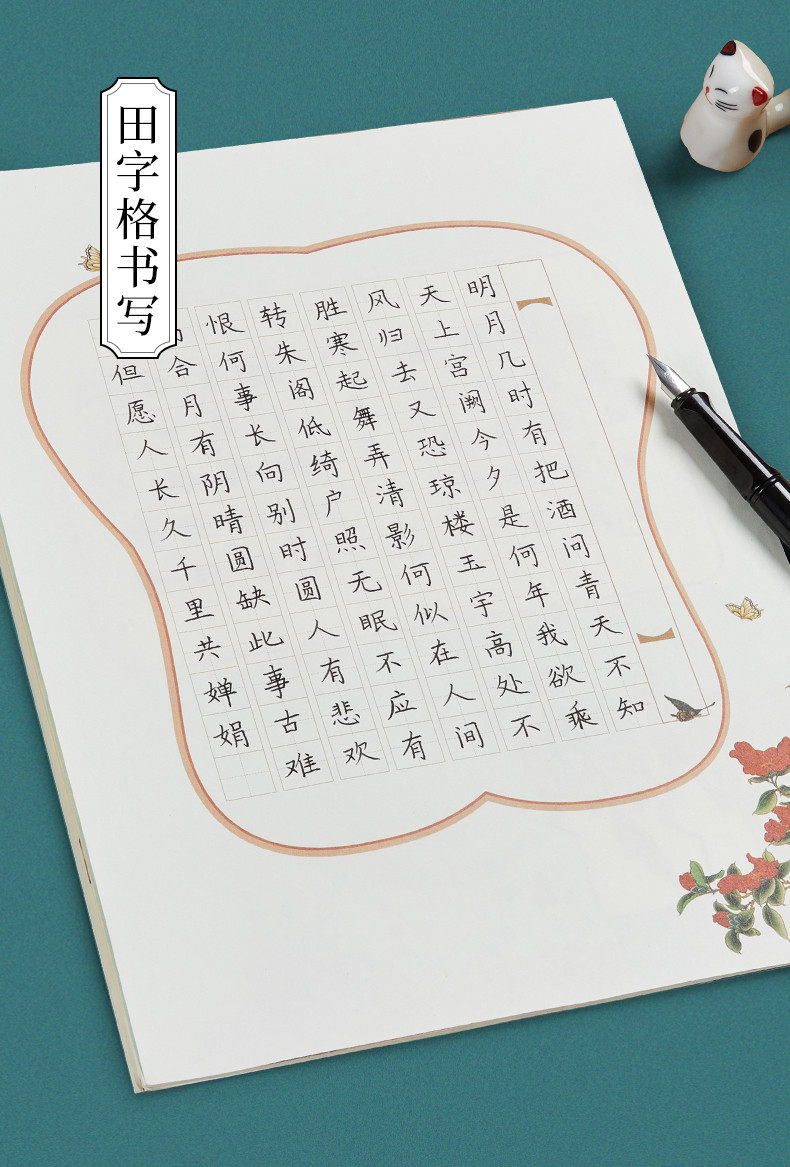 田字格书写
明月几时有把酒问青天不知
天上宫阙今夕是何年我欲乘
风归去又恐琼楼玉宇高处不
胜寒起舞弄清影何似在人间
转朱阁低绮户照无眠不应有
恨何事长向别时圆人有悲欢
合月有阴晴圆缺此事古难
但愿人长久千里共婵娟